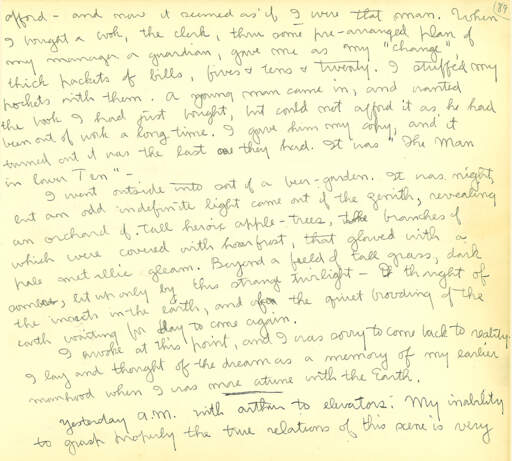 189
afford - and now it seemed as if I were that man. When
I bought a book, the clerk, thru some pre-arranged plan of
my manager a guardian, gave me as my "change"
thick packets of bills, fives & tens & twenty. I stuffed my
pockets with them. A young man came in, and wanted
the book I had just bought, but could not afford it as he had
been out of work a long time. I gave him my copy, and it
turned out it was the last one they had. It was "The Man
in Lower Ten" -
I went outside into sort of a beer-garden. It was night,
but an odd indefinite light came out of the zenith, revealing
an orchard of tall heroic apple-trees, the branches of
which were covered with hoar frost, that glowed with a
pale metallic gleam. Beyond a field of tall grass, dark
somber, lit up only by this strange twilight - I thought of
the insects in the earth, and of the quiet brooding of the
earth waiting for day to come again.
I awoke at this point, and I was sorry to come back to reality.
I lay and thought of the dream as a memory of my earlier
manhood when I was more atune with the Earth.
Yesterday a.m. with Arthur to elevators. My inability
to grasp properly the true relations of this scene is very